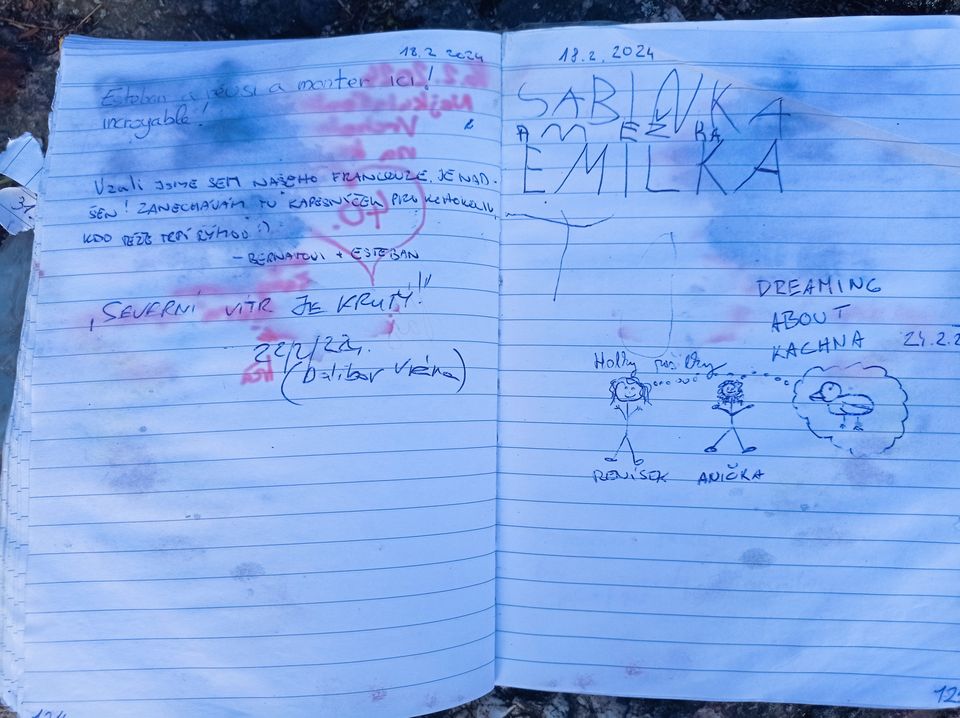 18.2 2024
Esteban a réussi a monter ici!
incroyable!
VZALI JSME SEM NAŠEHO FRANCOUZE, JE NAD-
ŠEN! ZANECHÁVÁM TU KAPESNÍČEK PRO KOHOKOLIV,
KDO TÉŽE TRPÍ RÝMOU :)
- BERNATOVI + ESTEBAN
"SEVERNÍ VÍTR JE KRUTÝ!"
22/2/24.
(Dalibor Vrána)
124
18.2. 2024
SABINKA
A M EŽ KA
EMILKA
DREAMING
ABOUT
KACHNA
24.2.2
Holky
RENÍSEK
ANIČKA
125